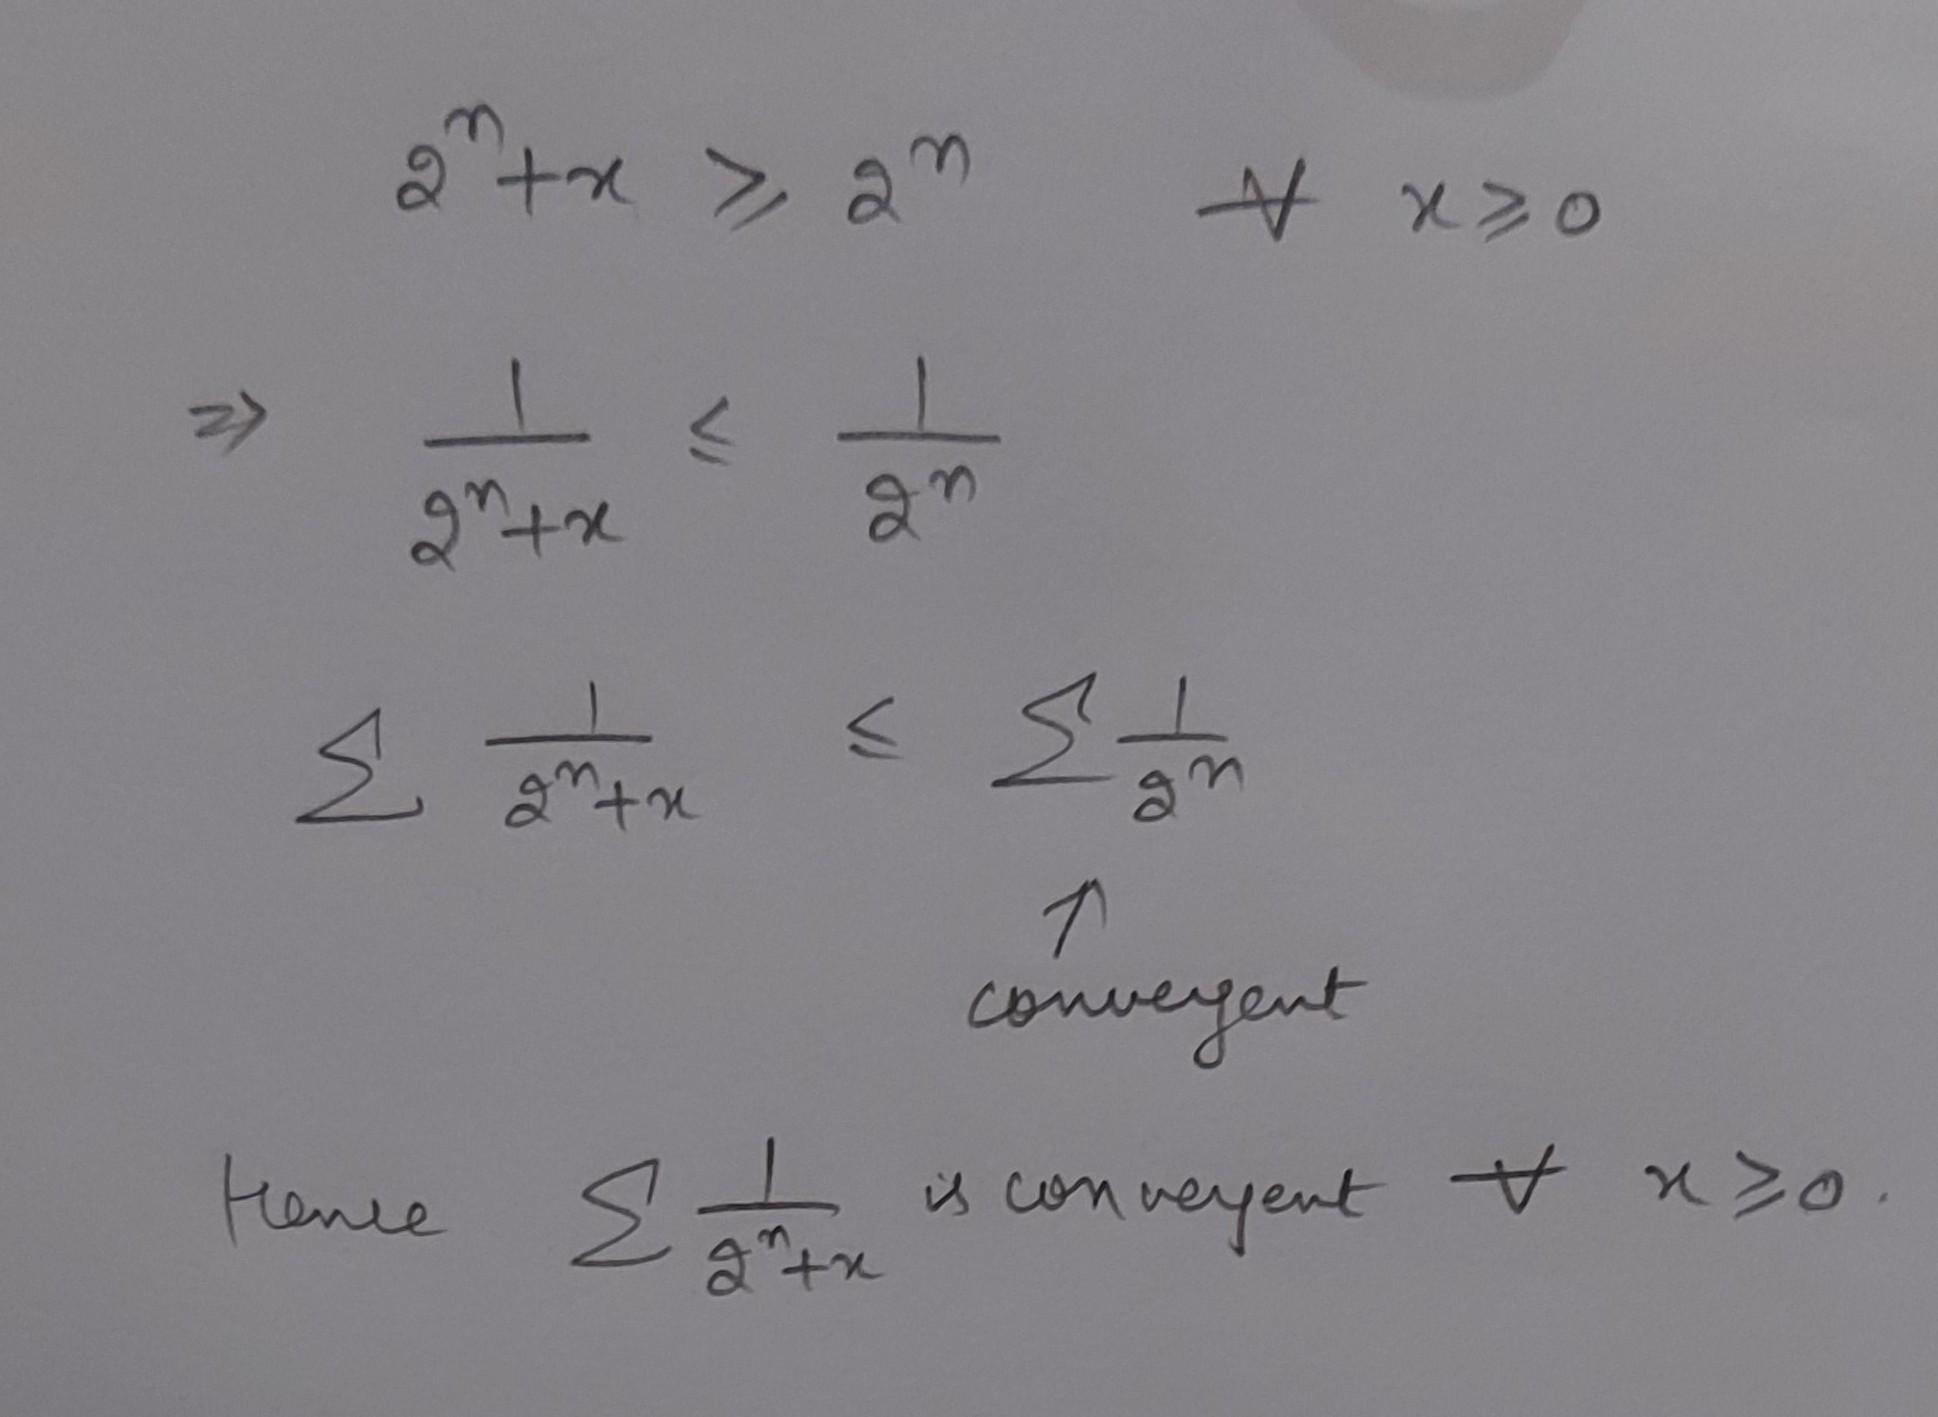 2ⁿ+x ≥ 2ⁿ ∀ x≥0
⇒ 1/(2ⁿ+x) ≤ 1/2ⁿ
∑ 1/(2ⁿ+x) ≤ ∑ 1/2ⁿ
↑
convergent
Hence ∑ 1/(2ⁿ+x) is convergent ∀ x≥0.